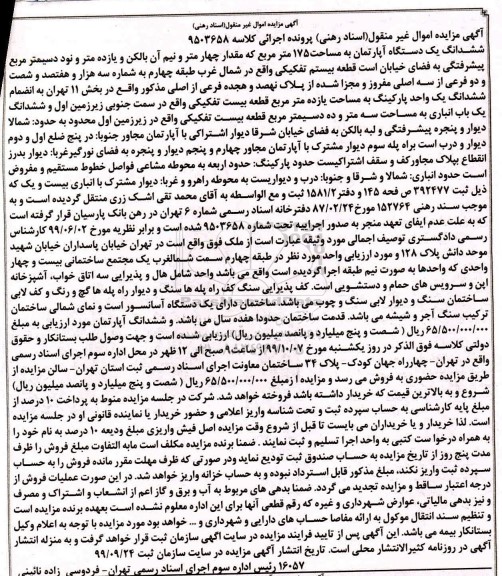 آگهی مزایده اموال غیر منقول(اسناد رهنی)
آگهی مزایده اموال غیر منقول(اسناد رهنی) پرونده اجرائی کلاسه ۹۵۰۳۶۵۸
ششدانگ یک دستگاه آپارتمان به مساحت۱۷۵ متر مربع که مقدار چهار متر و نیم آن بالکن و یازده متر و نود دسیمتر مربع
پیشرفتگی به فضای خیابان است قطعه بیستم تفکیکی واقع در شمال غرب طبقه چهارم به شماره سه هزار و هفتصد و شصت
و دو فرعی از سه اصلی مفروز و مجزا شده از پلاک نهصد و هجده فرعی از اصلی مذکور واقع در بخش ۱۱ تهران به انضمام
ششدانگ یک واحد پارکینگ به مساحت یازده متر مربع قطعه بیست تفکیکی واقع در سمت جنوبی زیرزمین اول و ششدانگ
یک باب انباری به مساحت سه متر و ده دسیمتر مربع قطعه بیست تفکیکی واقع در زیرزمین اول محدود به حدود: شمالا
دیوار و پنجره پیشرفتگی و لبه بالکن به فضای خیابان شرقا دیوار اشتراکی با آپارتمان مجاور جنوبا: در پنج ضلع اول و دوم
دیوار و درب است براه پله سوم دیوار مشترک با آپارتمان مجاور چهارم و پنجم دیوار و پنجره به فضای نورگیرغربا: دیوار بدرز
انقطاع بپلاک مجاورکف و سقف اشتراکیست حدود پارکینگ: حدود اربعه به محوطه مشاعی فواصل خطوط مستقیم و مفروض
است حدود انباری: شمالا و شرقا و جنوبا: درب و دیواریست به محوطه راهرو و غربا: دیوار مشترک با انباری بیست و یک که
ذیل ثبت ۳۹۲۴۷۷ ص فحه ۱۴۵ و دفتر۱۵۸۱/۲ ثبت و مع الواسطه به آقای محمد تقی اشک زری منتقل گردیده است و به
موجب سند رهنی ۱۵۲۷۶۴ مورخ۸۷/۰۲/۲۴ دفترخانه اسناد رسمی شماره ۶ تهران در رهن بانک پارسیان قرار گرفته است
که به علت عدم ایفای تعهد منجر به صدور اجراییه تحت شماره ۹۵۰۳۶۵۸ شده است و برابر نظریه مورخ ۹۹/۰۶/۰۲ کارشناس
رسمی دادگستری توصیف اجمالی مورد وثیقه عبارت است از ملک فوق واقع است در تهران خیابان پاسداران خیابان شهید
موحد دانش پلاک ۱۲۸ و مورد ارزیابی واحد مورد نظر در طبقه چهارم سمت شمالغرب یک مجتمع ساختمانی بیست و چهار
واحدی که واحدها به صورت نیم طبقه اجرا گردیده است واقع می باشد واحد شامل هال و پذیرایی سه اتاق خواب، آشپزخانه
اپن و سرویس های حمام و دستشویی است. کف پذیرایی سنگ کف راه پله ها سنگ و دیوار راه پله ها گچ و رنگ و کف لابی
ساختمان سنگ و دیوار لابی سنگ و چوب می باشد. ساختمان دارای یک دستگاه آسانسور است و نمای شمالی ساختمان
ترکیب سنگ آجر و شیشه می باشد. قدمت ساختمان حدودا هفده سال می باشد. و ششدانگ آپارتمان مورد ارزیابی به مبلغ
۶۵/۵۰۰/۰۰۰/۰۰۰ ریال ( شصت و پنج میلیارد و پانصد میلیون ریال) ارزیابی شده است و جهت وصول طلب بستانکار و حقوق
دولتی کلاسه فوق الذکر در روز یکشنبه مورخ ۹۹/۱۰/۰۷از ساعت۹ صبح الی ۱۲ ظهر در محل اداره سوم اجرای اسناد رسمی
واقع در تهران- چهارراه جهان کودک- پلاک ۳۴ ساختمان معاونت اجرای اسناد رسمی ثبت استان تهران- سالن مزایده از
طریق مزایده حضوری به فروش می رسد و مزایده از مبلغ ۶۵/۵۰۰/۰۰۰/۰۰۰ ریال ( شصت و پنج میلیارد و پانصد میلیون ریال)
شروع و به بالاترین قیمت که خریدار داشته باشد فروخته خواهد شد. شرکت در جلسه مزایده منوط به پرداخت ۱۰ درصد از
مبلغ پایه کارشناسی به حساب سپرده ثبت و تحت شناسه واریز اعلامی و حضور خریدار یا نماینده قانونی او در جلسه مزایده
است. لذا خریدار و یا خریداران می بایست تا قبل از شروع وقت مزایده اصل فیش واریزی مبلغ ودیعه ۱۰ درصد به نام خود را
به همراه درخواست کتبی به واحد اجرا تسلیم و ثبت نمایند. ضمنا برنده مزایده مکلف است مابه التفاوت مبلغ فروش را ظرف
مدت پنج روز از تاریخ مزایده به حساب صندوق ثبت تودیع نماید ودر صورتی که ظرف مهلت مقرر مانده فروش را به حساب
سپرده ثبت واریز نکند، مبلغ مذکور قابل استرداد نبوده و به حساب خزانه واریز خواهد شد. در این صورت عملیات فروش از
درجه اعتبار ساقط و مزایده تجدید می گردد. ضمنا بدهی های مربوط به آب و برق و گاز اعم از انشعاب و اشتراک و مصرف
و نیز بدهی مالیاتی، عوارض شهرداری و غیره که رقم قطعی آنها برای این اداره معلوم نشده است بعهده برنده مزایده است
و تنظیم سند انتقال موکول به ارائه مفاصا حساب های دارایی و شهرداری و ... خواهد بود مورد مزایده با توجه به اعلام وکیل
بستانکار بیمه می باشد. این آگهی پس از تایید فرایند مزایده در سایت آگهی سازمان ثبت قرار خواهد گرفت و به منزله انتشار
آگهی در روزنامه کثیرالانتشار محلی است. تاریخ انتشار آگهی مزایده در سایت سازمان ثبت ۹۹/۰۹/۲۴
۱۶۰۵۷ رئیس اداره سوم اجرای اسناد رسمی تهران- فردوسی زاده نائینی